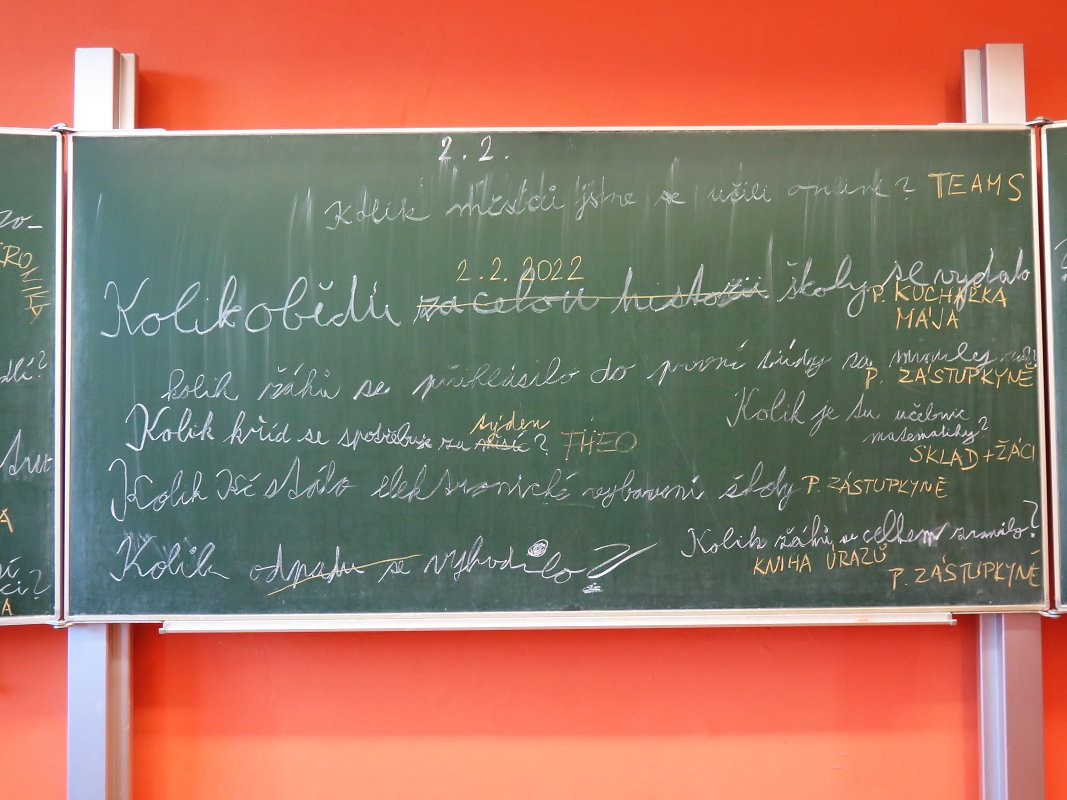 2.2.
Kolik měsíců jsme se učili online? TEAMS
2.2.2022
Kolik obědů za celou historii školy se vydalo
P. KUCHAŘKA
MÁJA
kolik žáků se přihlásilo do první třídy za minulý
P. ZÁSTUPKYNĚ
Kolik je tu učebnic
matematiky?
SKLAD + ŽÁCI
týden
Kolik kříd se spotřebuje za ? THEO
Kolik Kč stálo elektronické vybavení školy P. ZÁSTUPKYNĚ
Kolik žáků se celkem zranilo?
KNIHA ÚRAZŮ
P. ZÁSTUPKYNĚ
Kolik odpadu se vyhodilo?